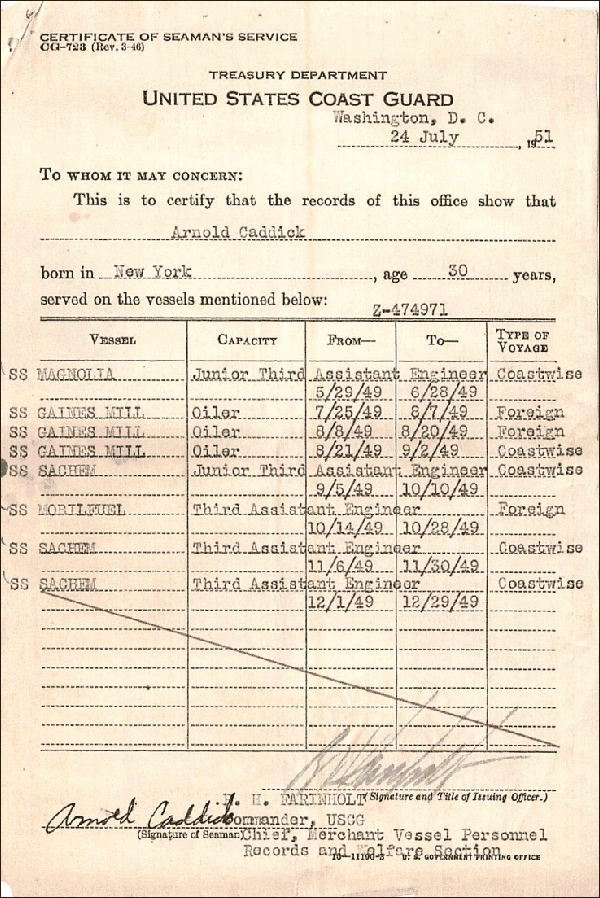 CERTIFICATE OF SEAMAN'S SERVICE
CG-723 (Rev. 3-46)
TREASURY DEPARTMENT
UNITED STATES COAST GUARD
Washington, D. C.
24 July, 1951
TO WHOM IT MAY CONCERN:
This is to certify that the records of this office show that
Arnold Caddick
born in New York, age 30 years,
served on the vessels mentioned below:
Z-474971
VESSEL CAPACITY FROM— TO— TYPE OF VOYAGE
SS MAGNOLIA Junior Third Assistant Engineer Coastwise
5/29/49 6/28/49
SS GAINES MILL Oiler 7/25/49 8/7/49 Foreign
SS GAINES MILL Oiler 8/8/49 8/20/49 Foreign
SS GAINES MILL Oiler 8/21/49 9/2/49 Coastwise
SS SACHEM Junior Third Assistant Engineer Coastwise
9/5/49 10/10/49
SS MOBILFUEL Third Assistant Engineer Foreign
10/14/49 10/28/49
SS SACHEM Third Assistant Engineer Coastwise
11/6/49 11/30/49
SS SACHEM Third Assistant Engineer Coastwise
12/1/49 12/29/49
H. FARINHOLT (Signature and Title of Issuing Officer.)
Arnold Caddick Commander, USCG
(Signature of Seaman) Chief, Merchant Vessel Personnel
Records and Welfare Section
U. S. GOVERNMENT PRINTING OFFICE